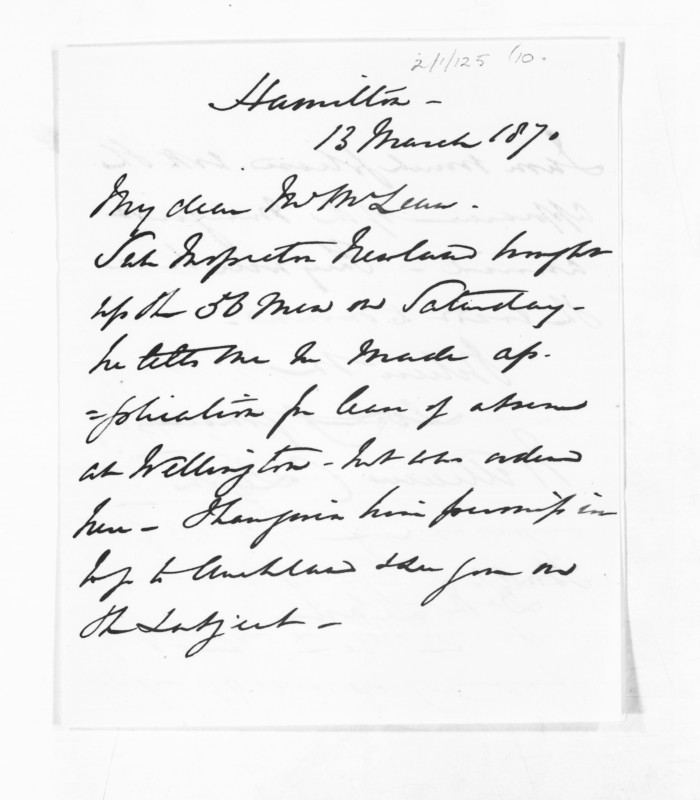 2/1/125 (10.
Hamilton -
13 March 1870
My dear Mr McLean.
Sub Inspector Newland brought
up the 56 Men on Saturday -
he tells me he made ap-
=plication for leave of absence
at Wellington - but was ordered
here - I have given him permission
to go to Auckland & see you on
the subject -